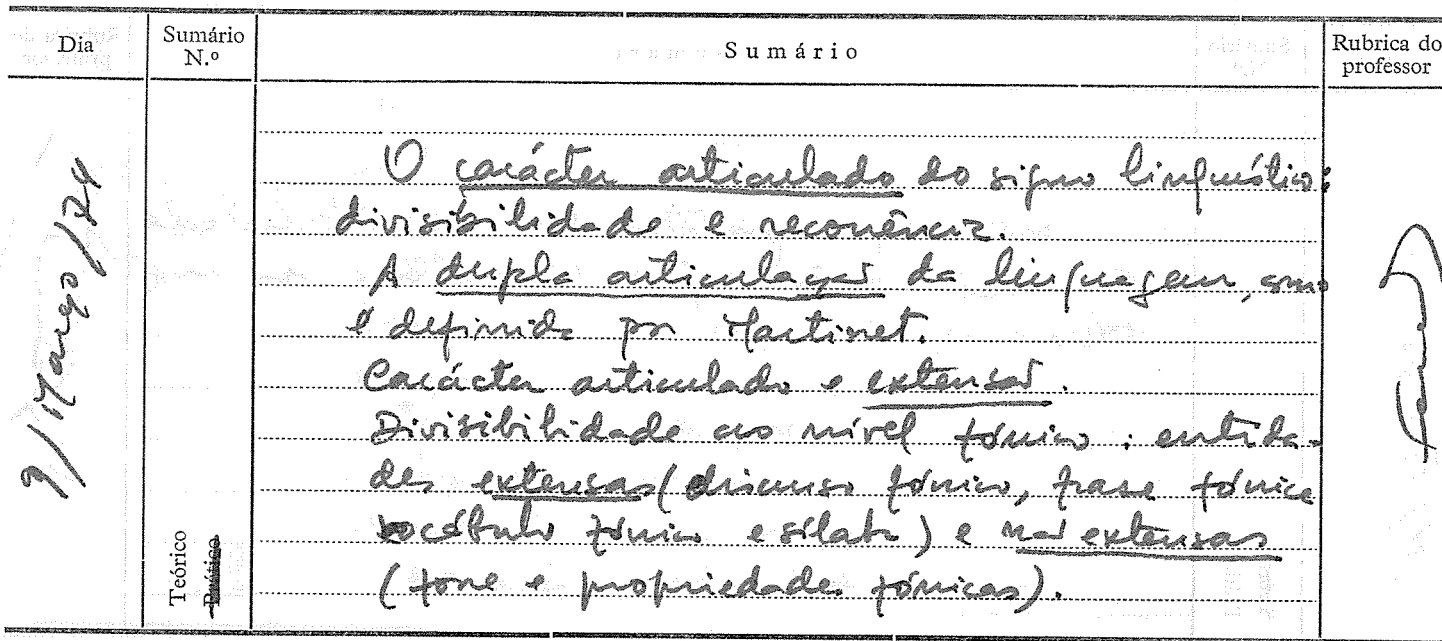 Dia
Sumário
N.º
Sumário
Rubrica do
professor
9/Março/74
Teórico
Prático
O carácter articulado do signo linguístico:
divisibilidade e recorrência.
A dupla articulação da linguagem, como
é definida por Martinet.
Carácter articulado e extensão.
Divisibilidade ao nível fónico: entida-
des extensas (discurso fónico, frase fónica
vocábulo fónico e sílaba) e não extensas
(fone e propriedades fónicas).